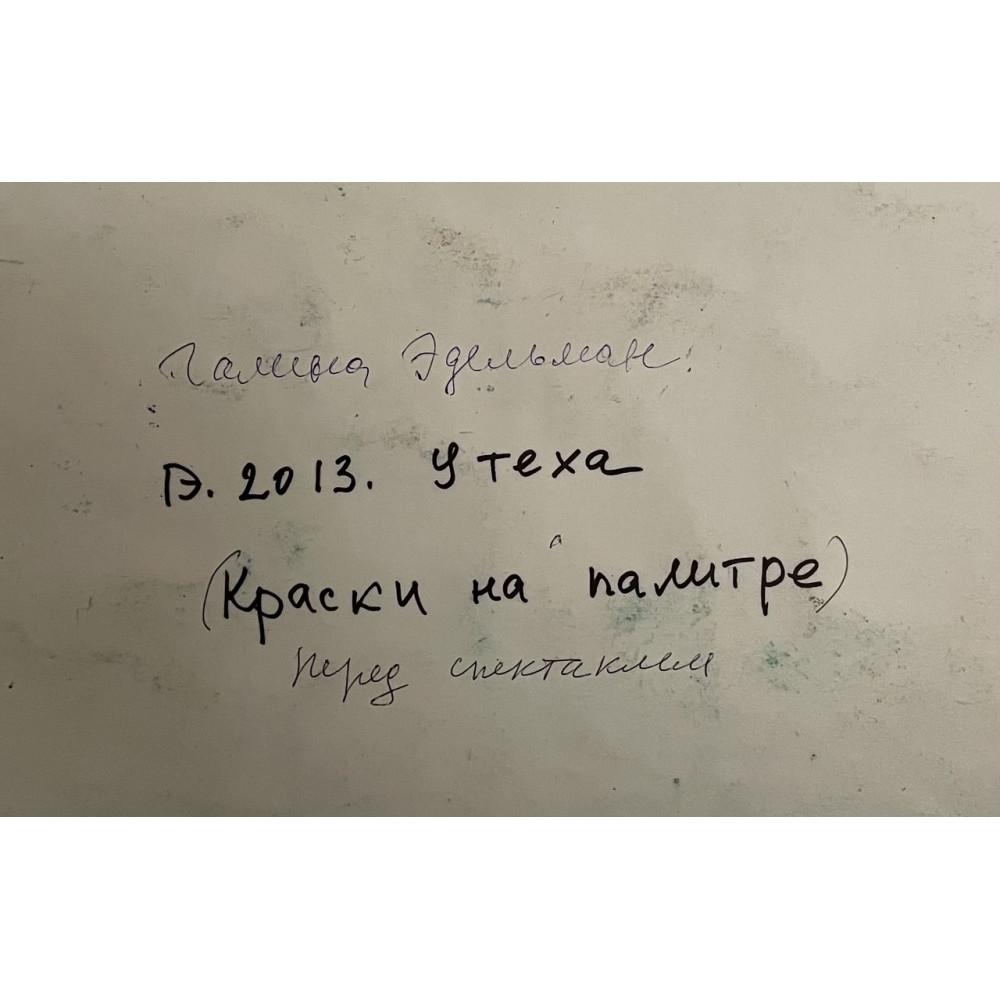 Галина Эдельман.
Э. 2013. Утеха
(Краски на палитре)
перед спектаклем